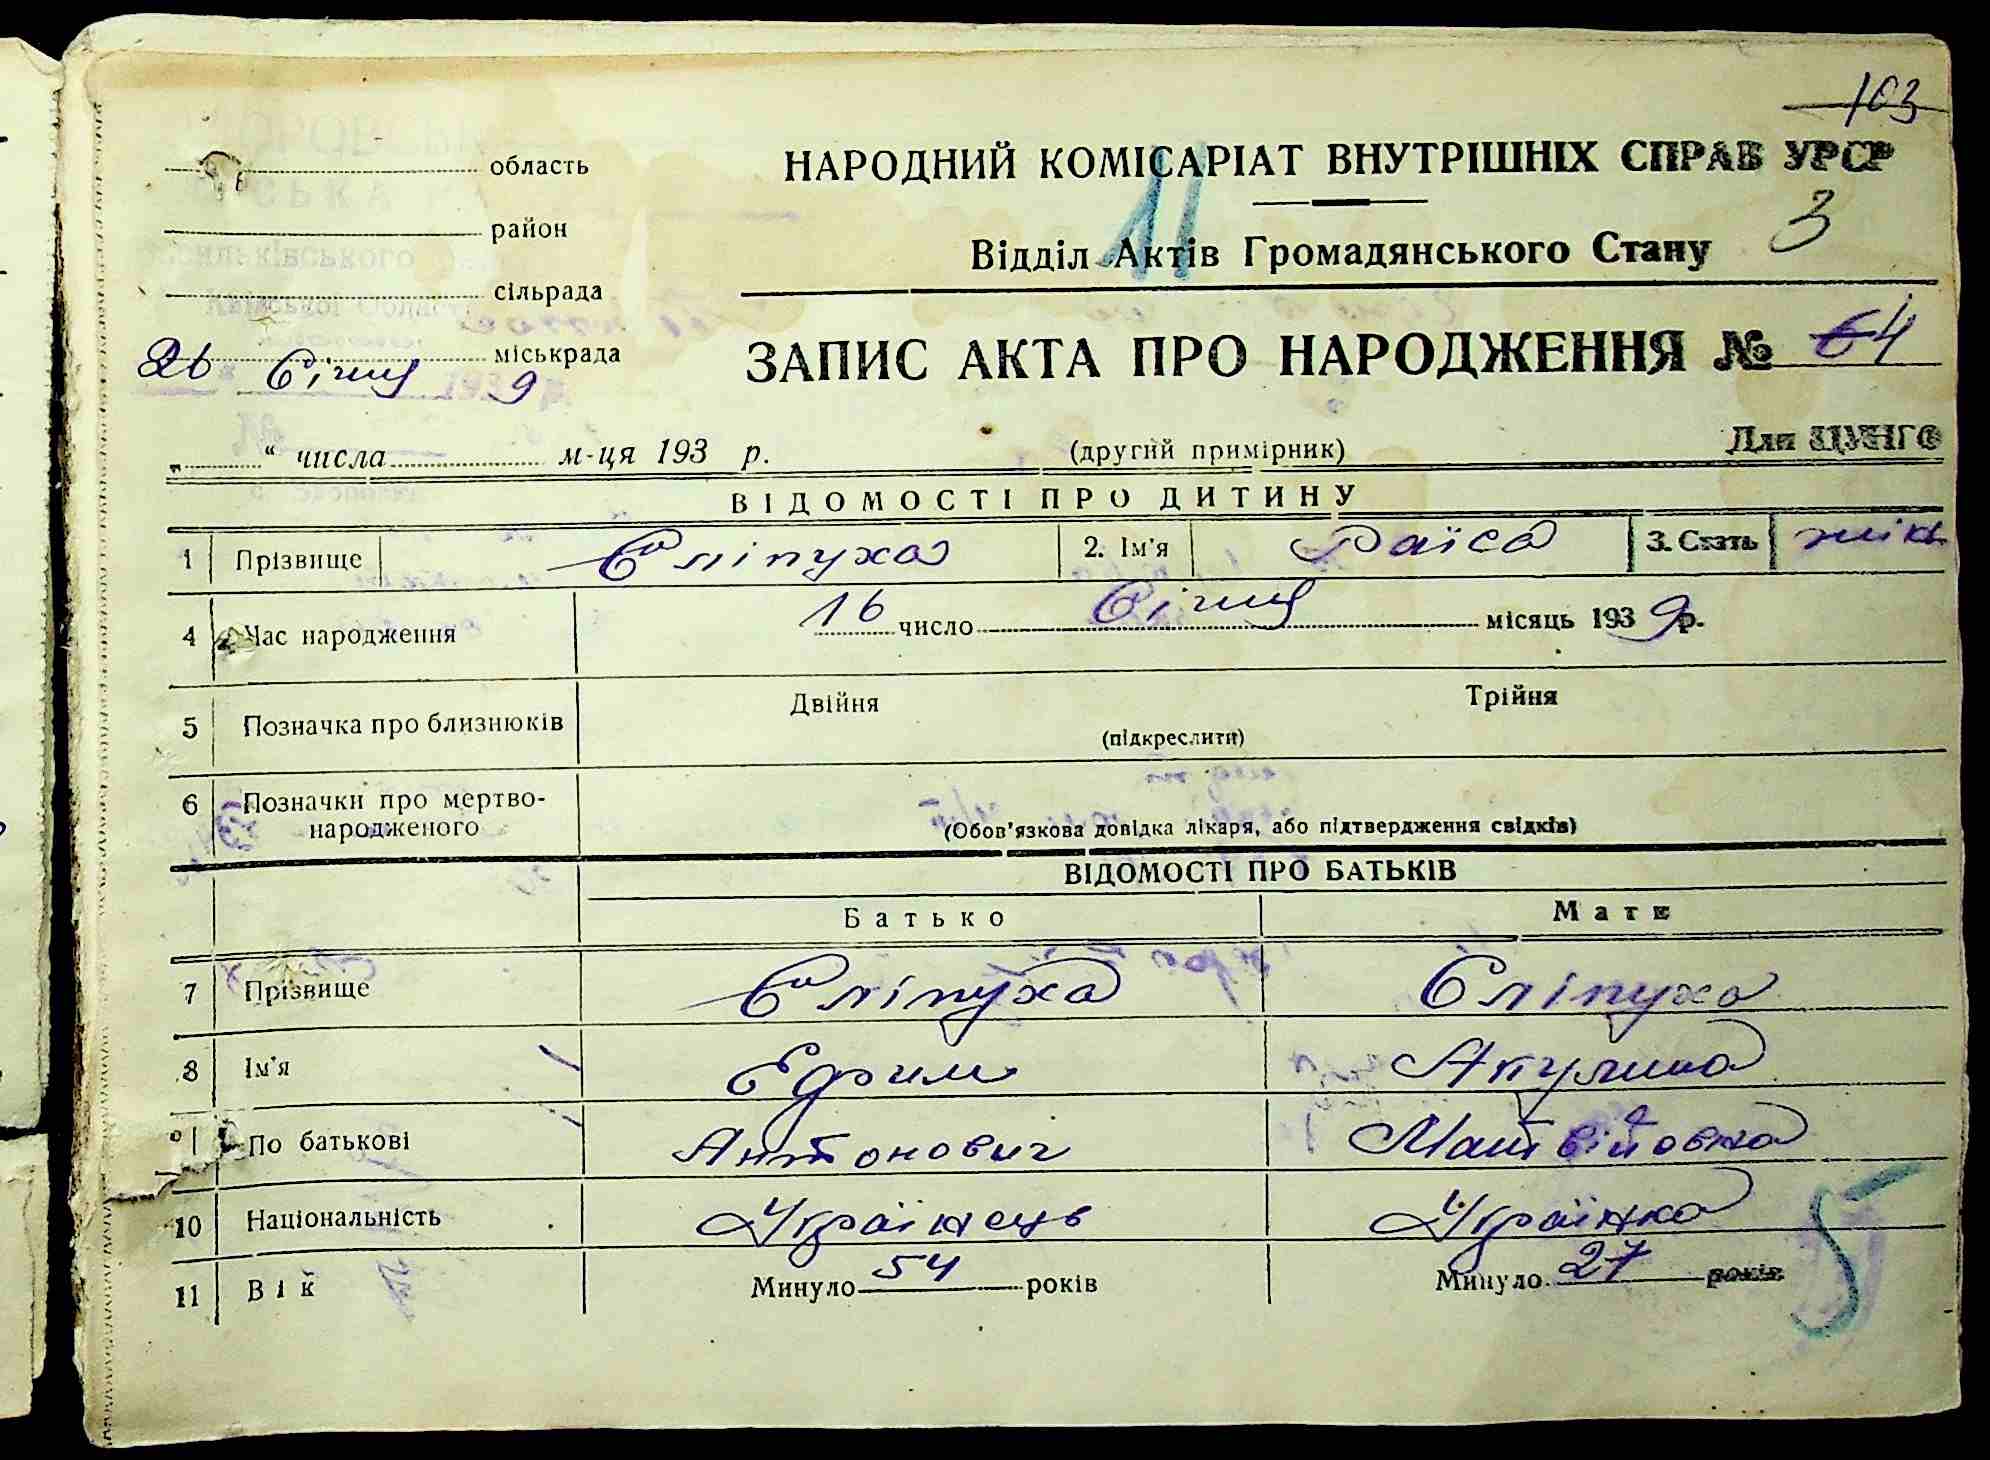 103
область
НАРОДНИЙ КОМІСАРІАТ ВНУТРІШНІХ СПРАВ УРСР
11
3
район
Відділ Актів Громадянського Стану
сільрада
міськрада
ЗАПИС АКТА ПРО НАРОДЖЕННЯ № 64
26 Січня 1939 р.
„ “ числа м-ця 193 р.
(другий примірник)
Для ЦУНГО
ВІДОМОСТІ ПРО ДИТИНУ
1 Прізвище Сліпуха 2. Ім'я Раїса 3. Стать жінк
4 Час народження 16 число Січня місяць 1939 р.
5 Позначка про близнюків Двійня Трійня
(підкреслити)
6 Позначки про мертво-
народженого (Обов'язкова довідка лікаря, або підтвердження свідків)
ВІДОМОСТІ ПРО БАТЬКІВ
Батько Мати
7 Прізвище Сліпуха Сліпуха
8 Ім'я Ефим Акулина
9 По батькові Антонович Матвійовна
10 Національність Українець Українка
11 Вік Минуло 54 років Минуло 27 років
5